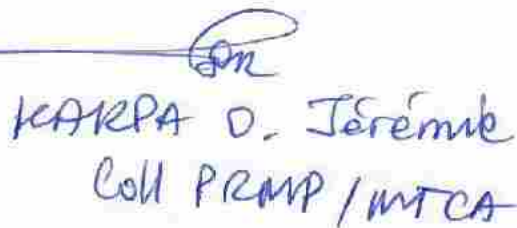 KARPA D. Jérémie
Coll PRMP/MTCA